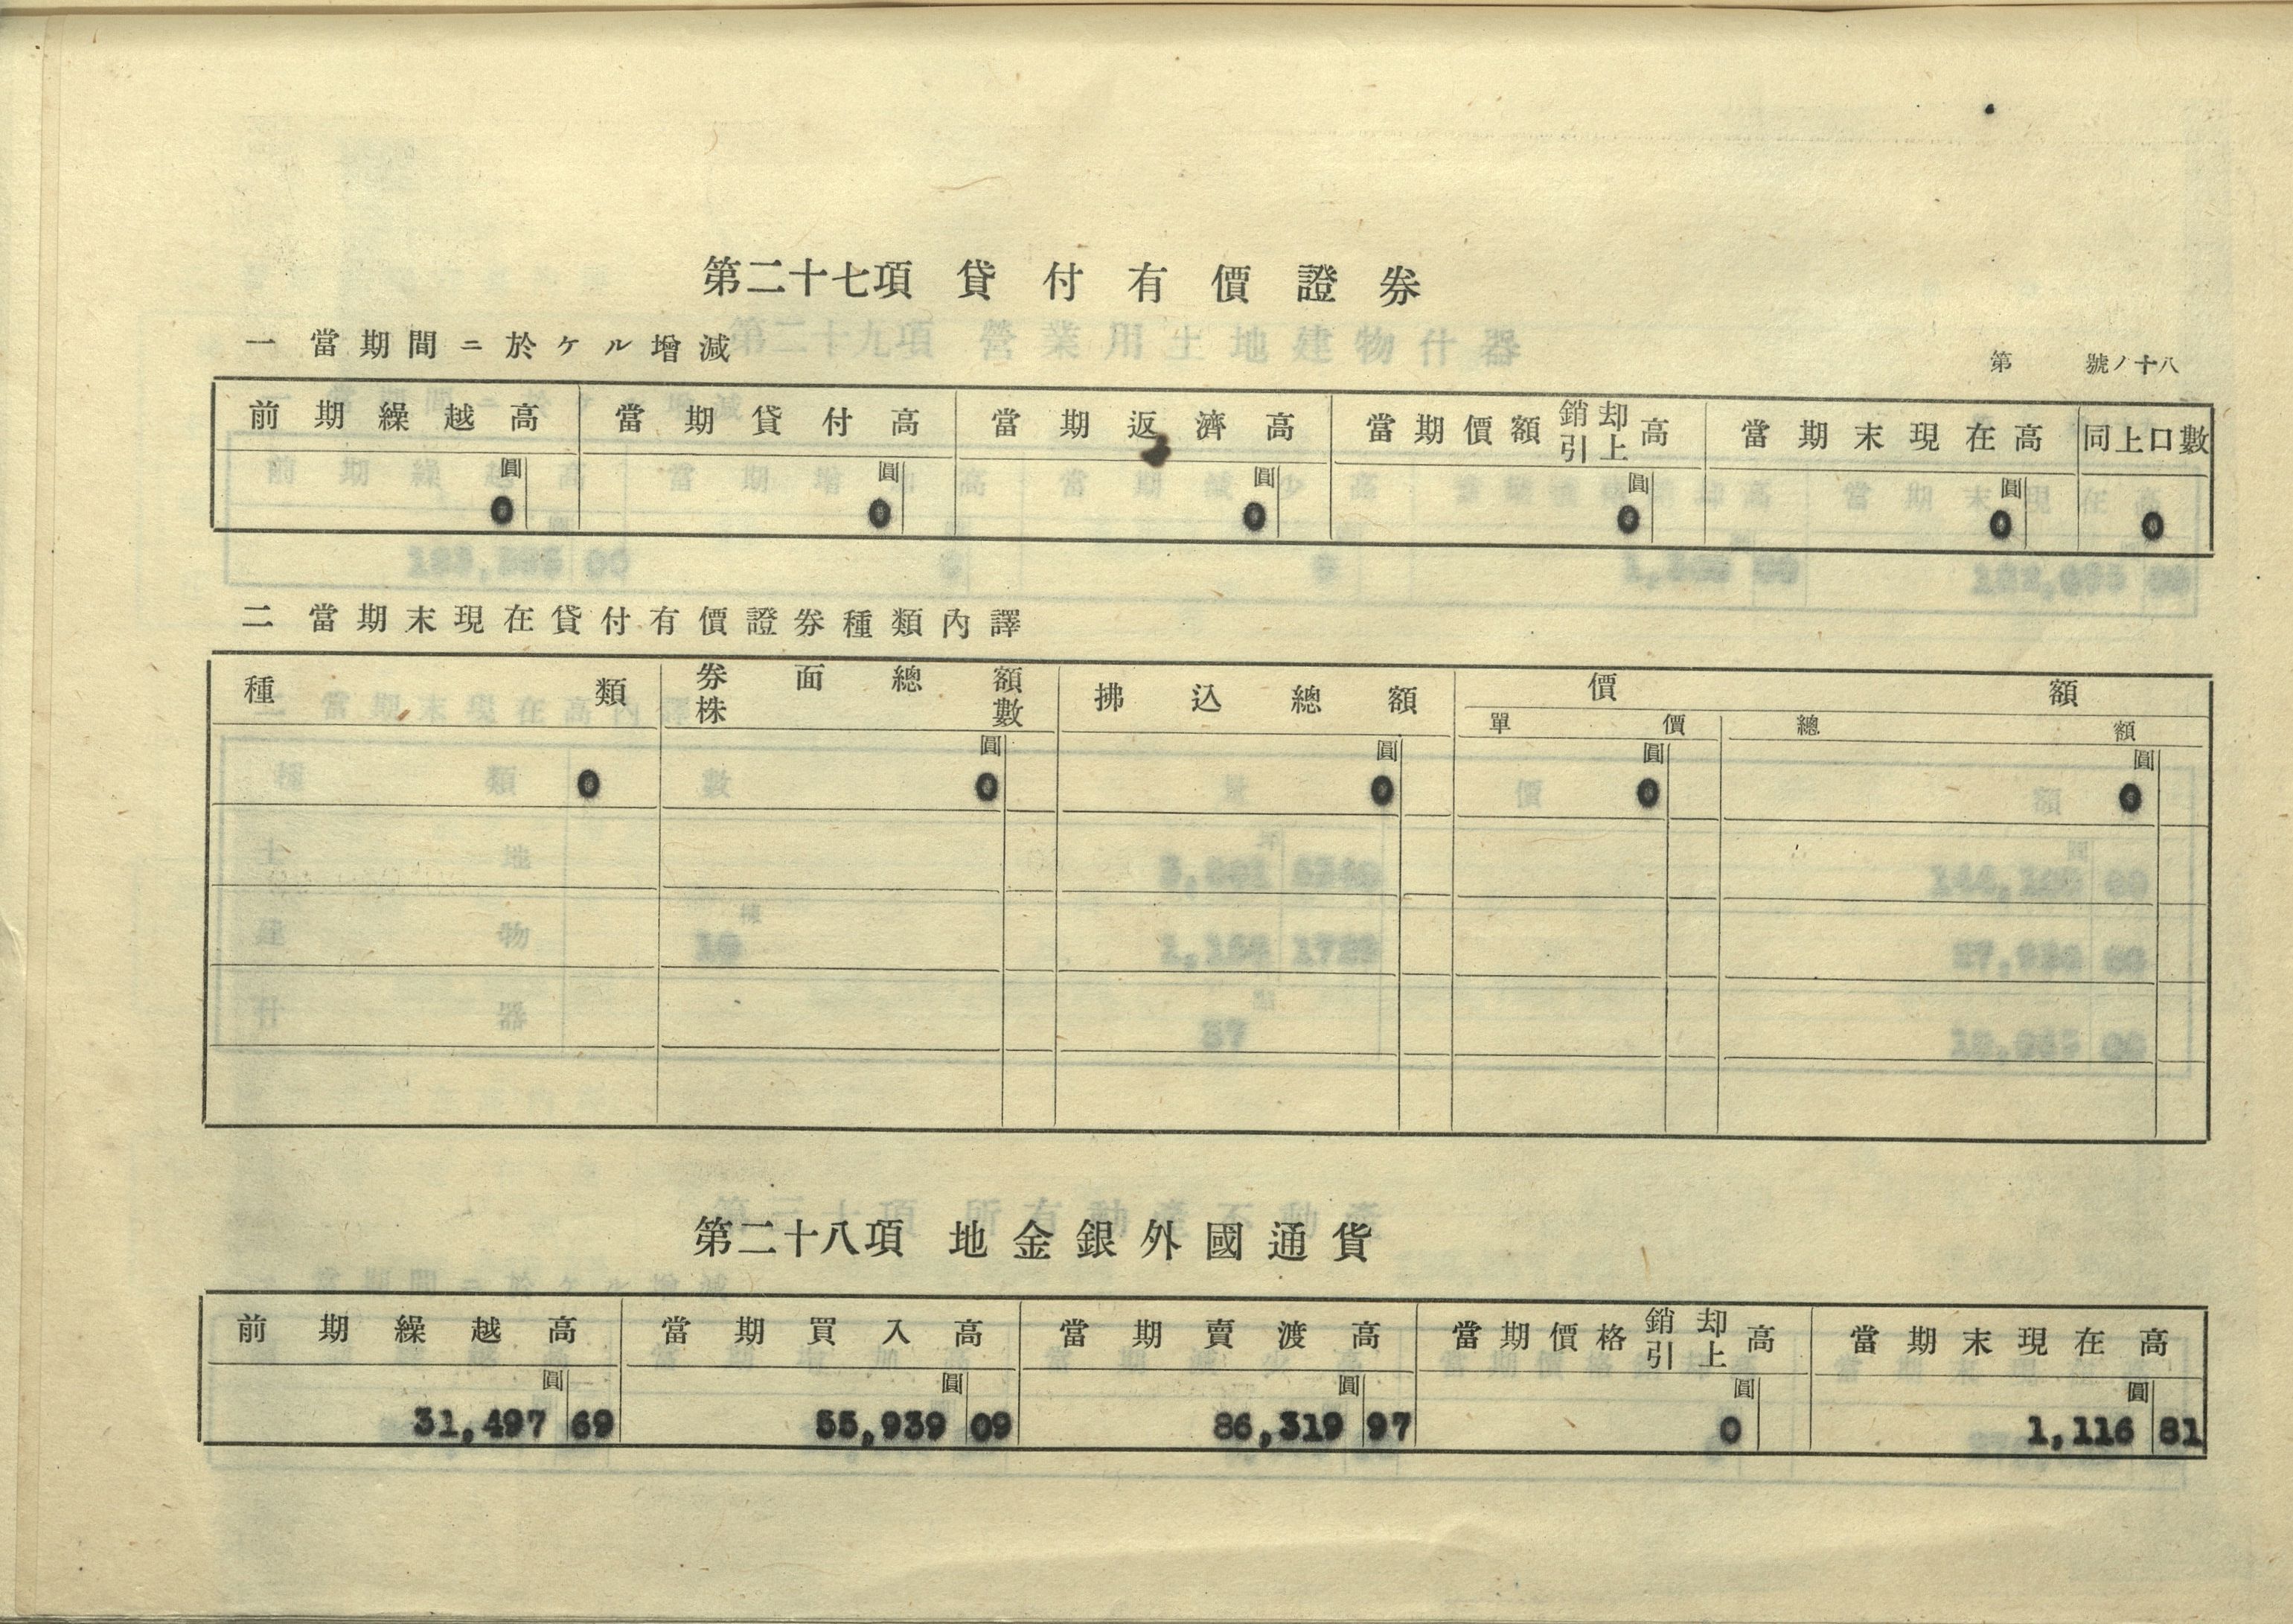 第二十七項 貸付有價證券
一 當期間ニ於ケル增減
第 號ノ十八
前期繰越高 當期貸付高 當期返濟高 當期價額銷却引上高 當期末現在高 同上口數
圓 圓 圓 圓 圓
0 0 0 0 0 0
二 當期末現在貸付有價證券種類內譯
種類 券面總額株數 拂込總額 價額
單價 總額
圓 圓 圓 圓
0 0 0 0 0
第二十八項 地金銀外國通貨
前期繰越高 當期買入高 當期賣渡高 當期價格銷却引上高 當期末現在高
圓 圓 圓 圓 圓
31,497 69 55,939 09 86,319 97 0 1,116 81